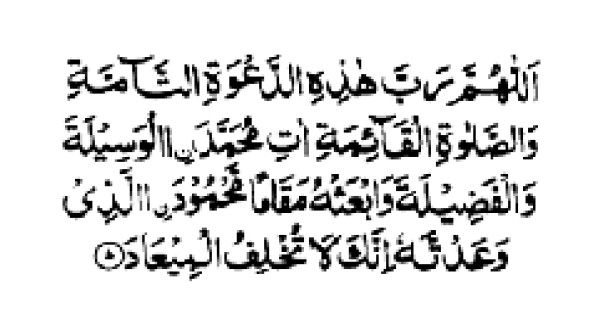 اَللّٰهُمَّ رَبَّ هٰذِهِ الدَّعْوَةِ التَّآمَّةِ
وَالصَّلٰوةِ الْقَآئِمَةِ اٰتِ مُحَمَّدَنِ الْوَسِيْلَةَ
وَالْفَضِيْلَةَ وَابْعَثْهُ مَقَامًا مَّحْمُوْدَنِ الَّذِىْ
وَعَدْتَّهٗ اِنَّكَ لَا تُخْلِفُ الْمِيْعَادَ